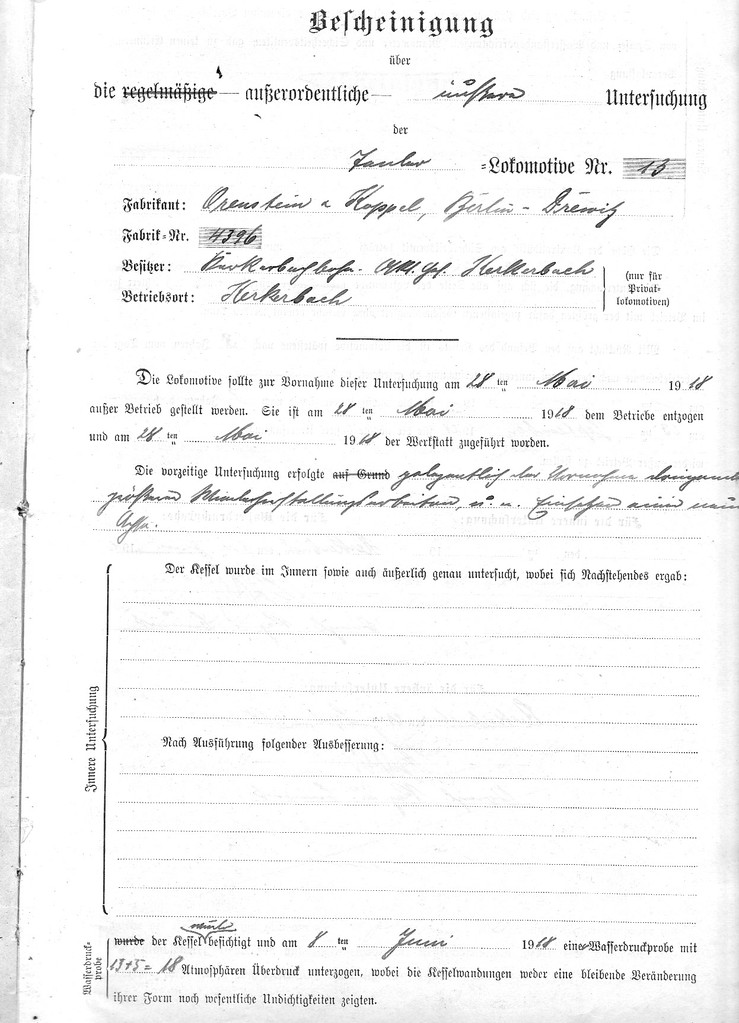 Bescheinigung
über
die regelmäßige — außerordentliche — äußere Untersuchung
der
Tender =Lokomotive Nr. 13
Fabrikant: Orenstein u Koppel, Berlin - Drewitz
Fabrik=Nr. 4396
Besitzer: Kerkerbachbahn Akt. Ges. Kerkerbach
(nur für
Privat=
lokomotiven)
Betriebsort: Kerkerbach
Die Lokomotive sollte zur Vornahme dieser Untersuchung am 28 ten Mai 1918
außer Betrieb gestellt werden. Sie ist am 28 ten Mai 1918 dem Betriebe entzogen
und am 28 ten Mai 1918 der Werkstatt zugeführt worden.
Die vorzeitige Untersuchung erfolgte auf Grund gelegentlich der Vornahme
größerer Wiederherstellungsarbeiten, u. a.
Achse.
Innere Untersuchung
Der Kessel wurde im Innern sowie auch äußerlich genau untersucht, wobei sich Nachstehendes ergab:
Nach Ausführung folgender Ausbesserung:
Wasserdruck=
probe
wurde
wurde der Kessel besichtigt und am 8 ten Juni 1918 eine Wasserdruckprobe mit
13+5= 18 Atmosphären Überdruck unterzogen, wobei die Kesselwandungen weder eine bleibende Veränderung
ihrer Form noch wesentliche Undichtigkeiten zeigten.